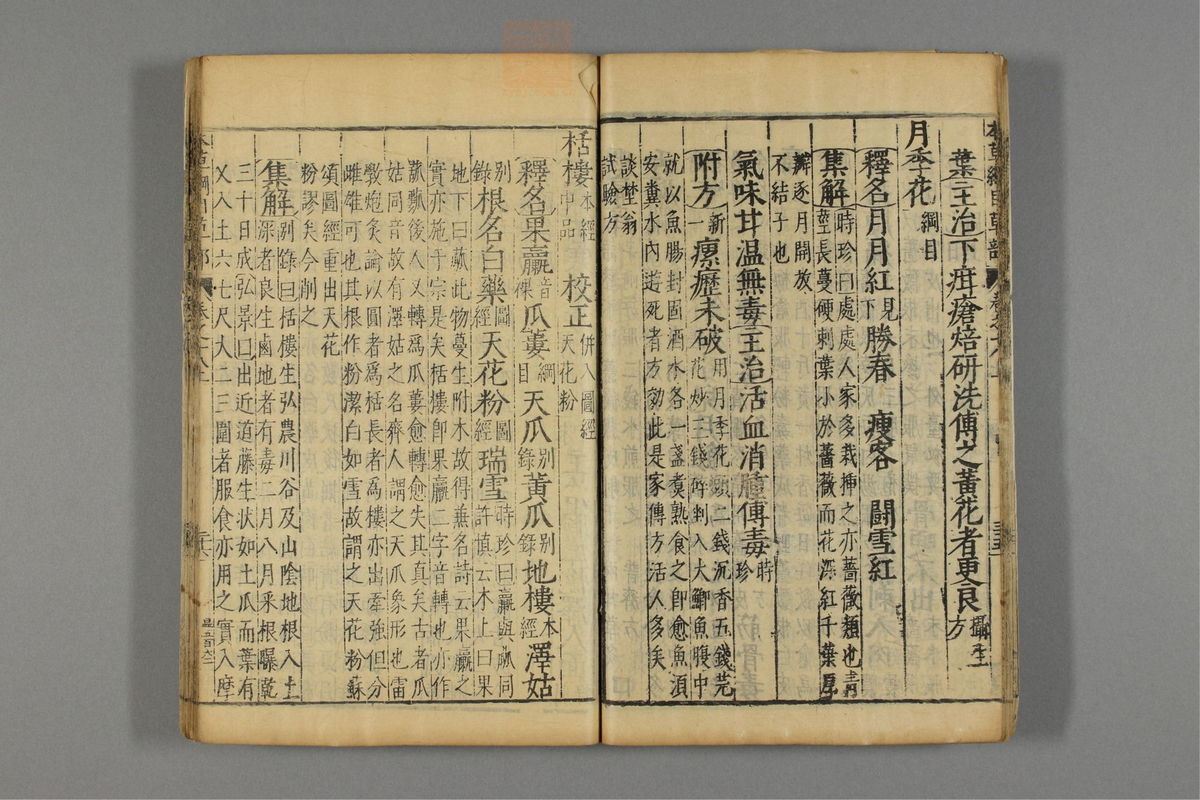 葉主治下疳瘡焙研洗傅之黃花者更良攝生方
月季花綱目
釋名月月紅見下勝春 瘦客 鬪雪紅
集解時珍曰處處人家多栽揷之亦薔薇類也青莖長蔓硬刺葉小於薔薇而花深紅千葉厚
瓣逐月開放不結子也
氣味甘温無毒主治活血消腫傅毒時珍
附方新一瘰癧未破用月季花頭二錢沉香五錢芫花炒三錢碎剉入大鯽魚腹中
就以魚腸封固酒水各一盞煑熟食之即愈魚須安糞水內遊死者方効此是家傳方活人多矣
談埜翁試驗方
栝樓本經中品 校正併入圖經天花粉
釋名果臝音裸瓜蔞綱目天瓜別錄黃瓜別錄地樓本經澤姑
別錄根名白藥圖經天花粉圖經瑞雪時珍曰臝與蓏同許慎云木上曰果
地下曰蓏此物蔓生附木故得兼名詩云果臝之
實亦施于宇是矣栝樓即果臝二字音轉也亦作
蓏𤬄後人又轉爲瓜蔞愈轉愈失其真矣古者瓜
姑同音故有澤姑之名齊人謂之天瓜象形也雷
斅炮炙論以圓者爲栝長者爲樓亦出牽強但分
雌雄可也其根作粉潔白如雪故謂之天花粉蘇
頌圖經重出天花
粉謬矣今削之
集解別錄曰栝樓生弘農川谷及山陰地根入土
深者良生鹵地者有毒二月八月采根曝乾
三十日成弘景曰出近道藤生狀如土瓜而葉有
乂入土六七尺大二三圍者服食亦用之實入摩